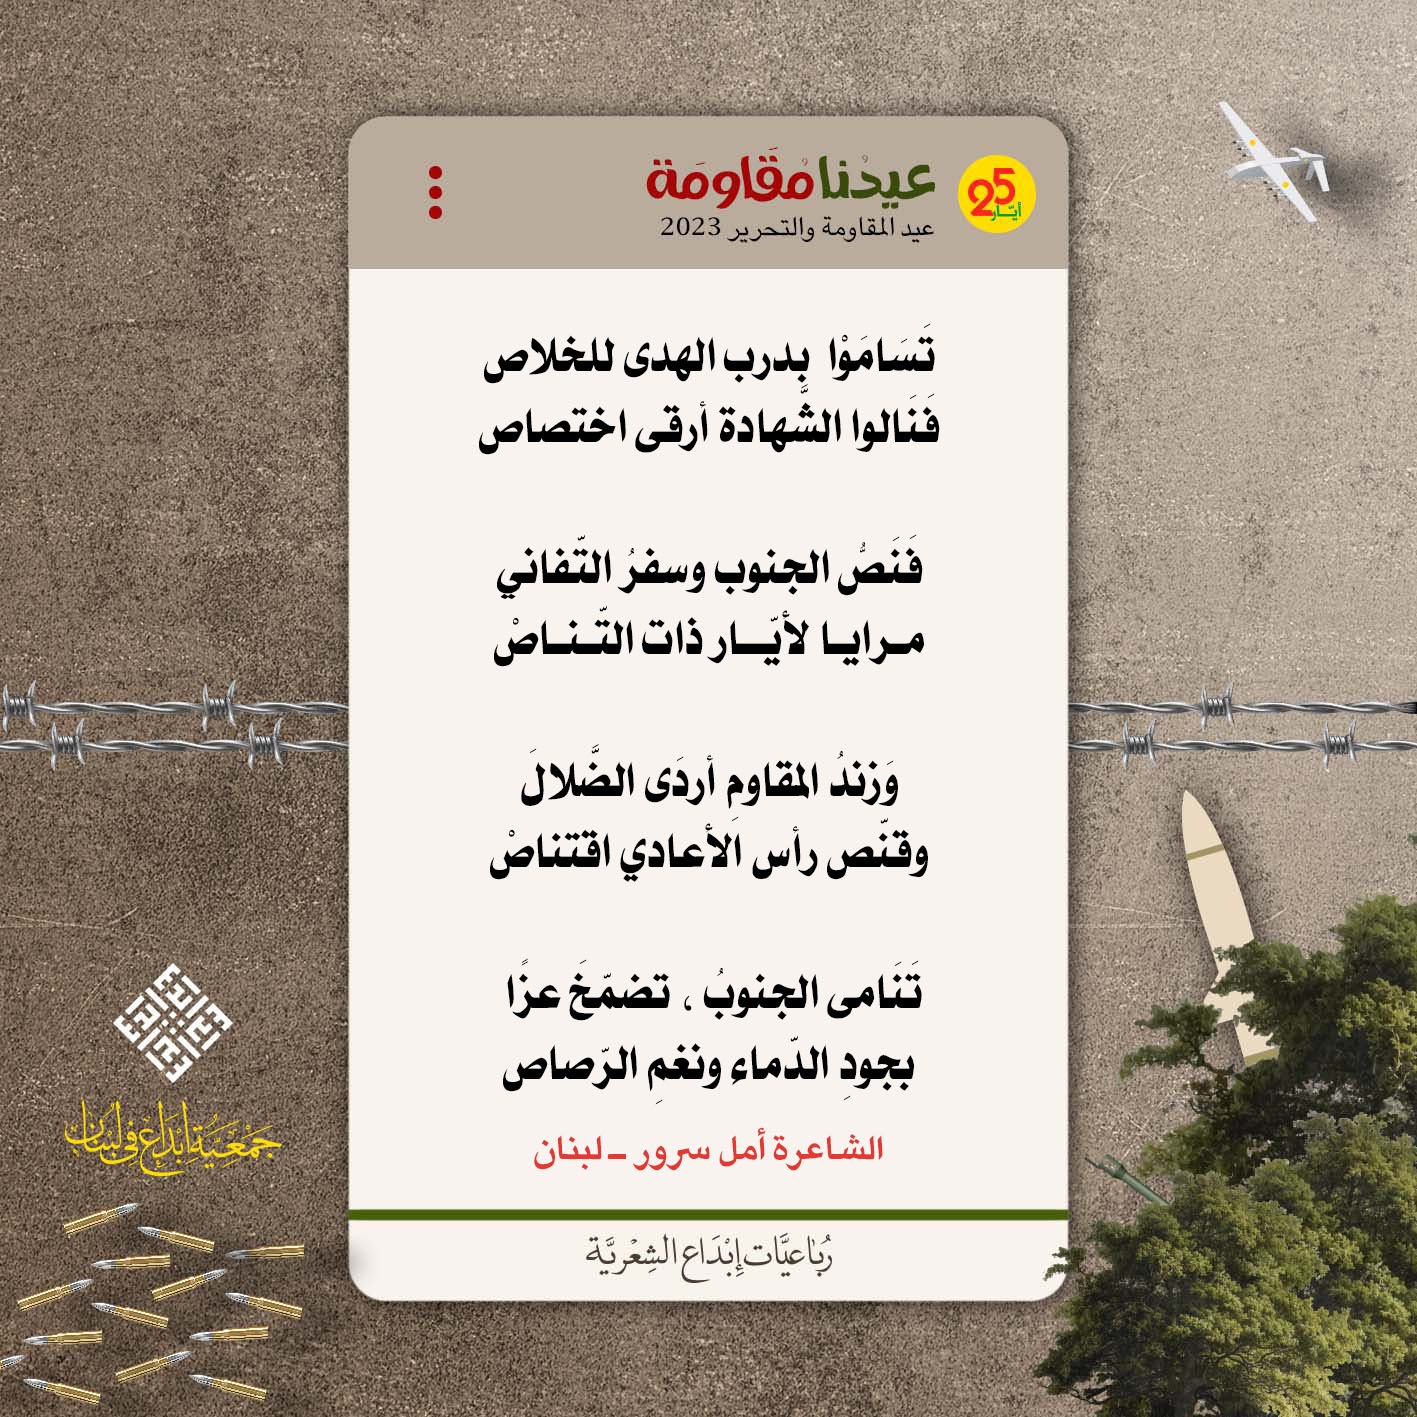 عيدُنا مُقَاومَة
25 أيّار
عيد المقاومة والتحرير 2023
تَسَامَوْا بِدرب الهدى للخلاص
فَنَالوا الشَّهادة أرقى اختصاص
فَنَصُّ الجنوب وسفرُ التّفاني
مـرايـا لأيّــار ذات التّـنـاصْ
وَزندُ المقاومِ أردَى الضَّلالَ
وقنّص رأس الأعادي اقتناصْ
تَنَامى الجنوبُ ، تضمّخَ عزًا
بجودِ الدّماء ونغمِ الرّصاص
الشاعرة أمل سرور ـ لبنان
رُبَاعيَّات إِبْدَاع الشِعْريَّة
جَمْعِيَّة إبْدَاع فِي لُبْنَان